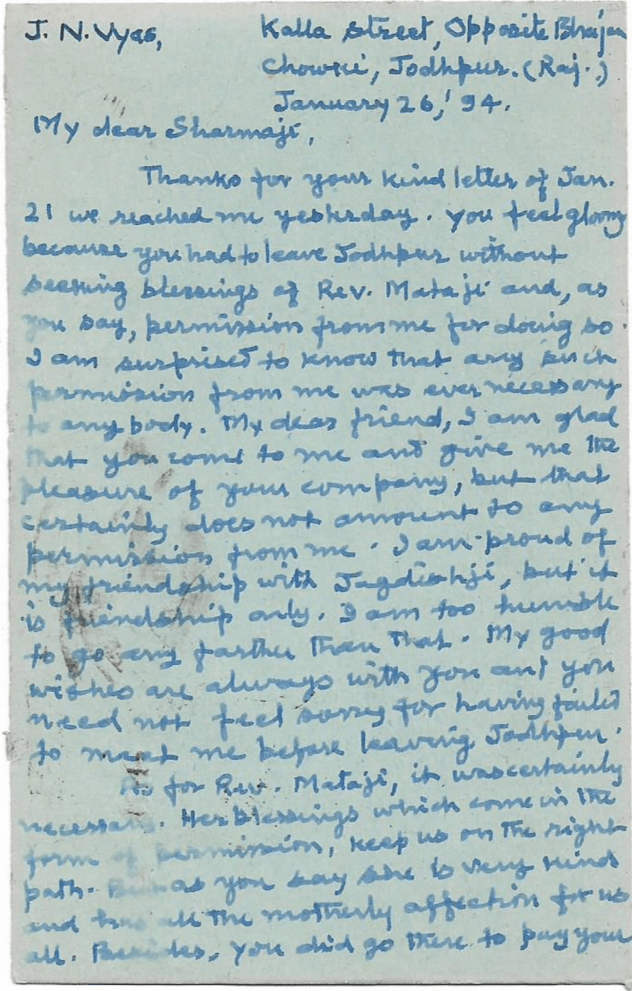 J. N. Vyas, Kalla Street, Opposite Bhajan
Chowki, Jodhpur. (Raj.)
January 26,' 94.
My dear Sharmaji,
Thanks for your kind letter of Jan.
21 we reached me yesterday. You feel gloomy
because you had to leave Jodhpur without
seeking blessings of Rev. Mataji and, as
you say, permission from me for doing so.
I am surprised to know that any such
permission from me was ever necessary
to any body. My dear friend, I am glad
that you come to me and give me the
pleasure of your company, but that
certainly does not amount to any
permission from me. I am proud of
my friendship with Jagdishji, but it
is friendship only. I am too humble
to go any farther than that. My good
wishes are always with you and you
need not feel sorry for having failed
to meet me before leaving Jodhpur.
As for Rev. Mataji, it was certainly
necessary. Her blessings which come in the
form of permission, keep us on the right
path. But as you say she is very kind
and has all the motherly affection for us
all. Besides, you did go there to pay your